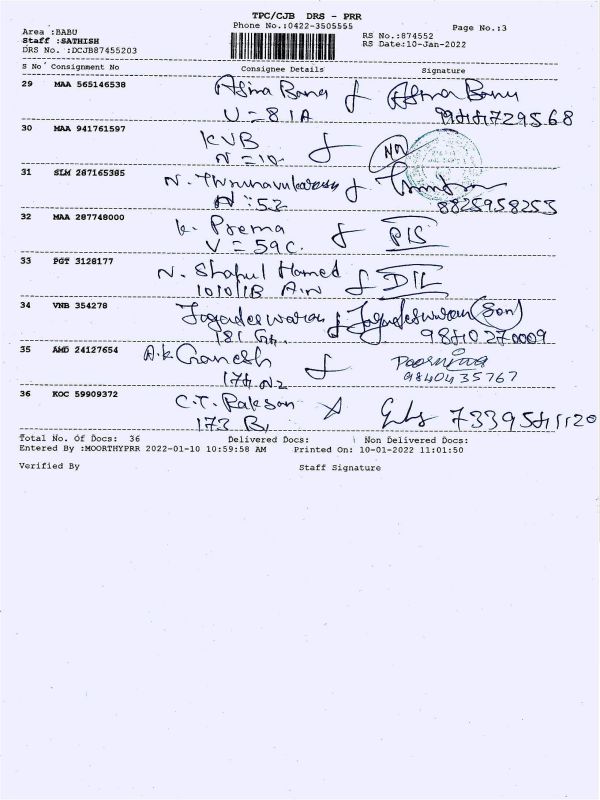 TPC/CJB DRS - PRR
Phone No.:0422-3505555
Page No.:3
Area :BABU
Staff :SATHISH
DRS No. :DCJB87455203
RS No.:874552
RS Date:10-Jan-2022
S No Consignment No Consignee Details Signature
29 MAA 565146538 Asma Banu Asma Banu
U = 81A
30 MAA 941761597 KVB
N = 10
31 SLM 287165385 N. Thirunavukarasu
N : 52 8825958255
32 MAA 287748000 K. Prema PIS
V = 59C.
33 PGT 3128177 N. Shahul Hamed DIL
1010/1B A.N
34 VNB 354278 Jagadeswaran Jagadeswaran (Son)
181 9840270009
35 AMD 24127654 A.K Ganesh Poornima
174 N2 9840435767
36 KOC 59909372 C.T. Rakson
173 B,
Total No. Of Docs: 36 Delivered Docs: Non Delivered Docs:
Entered By :MOORTHYPRR 2022-01-10 10:59:58 AM Printed On: 10-01-2022 11:01:50
Verified By Staff Signature